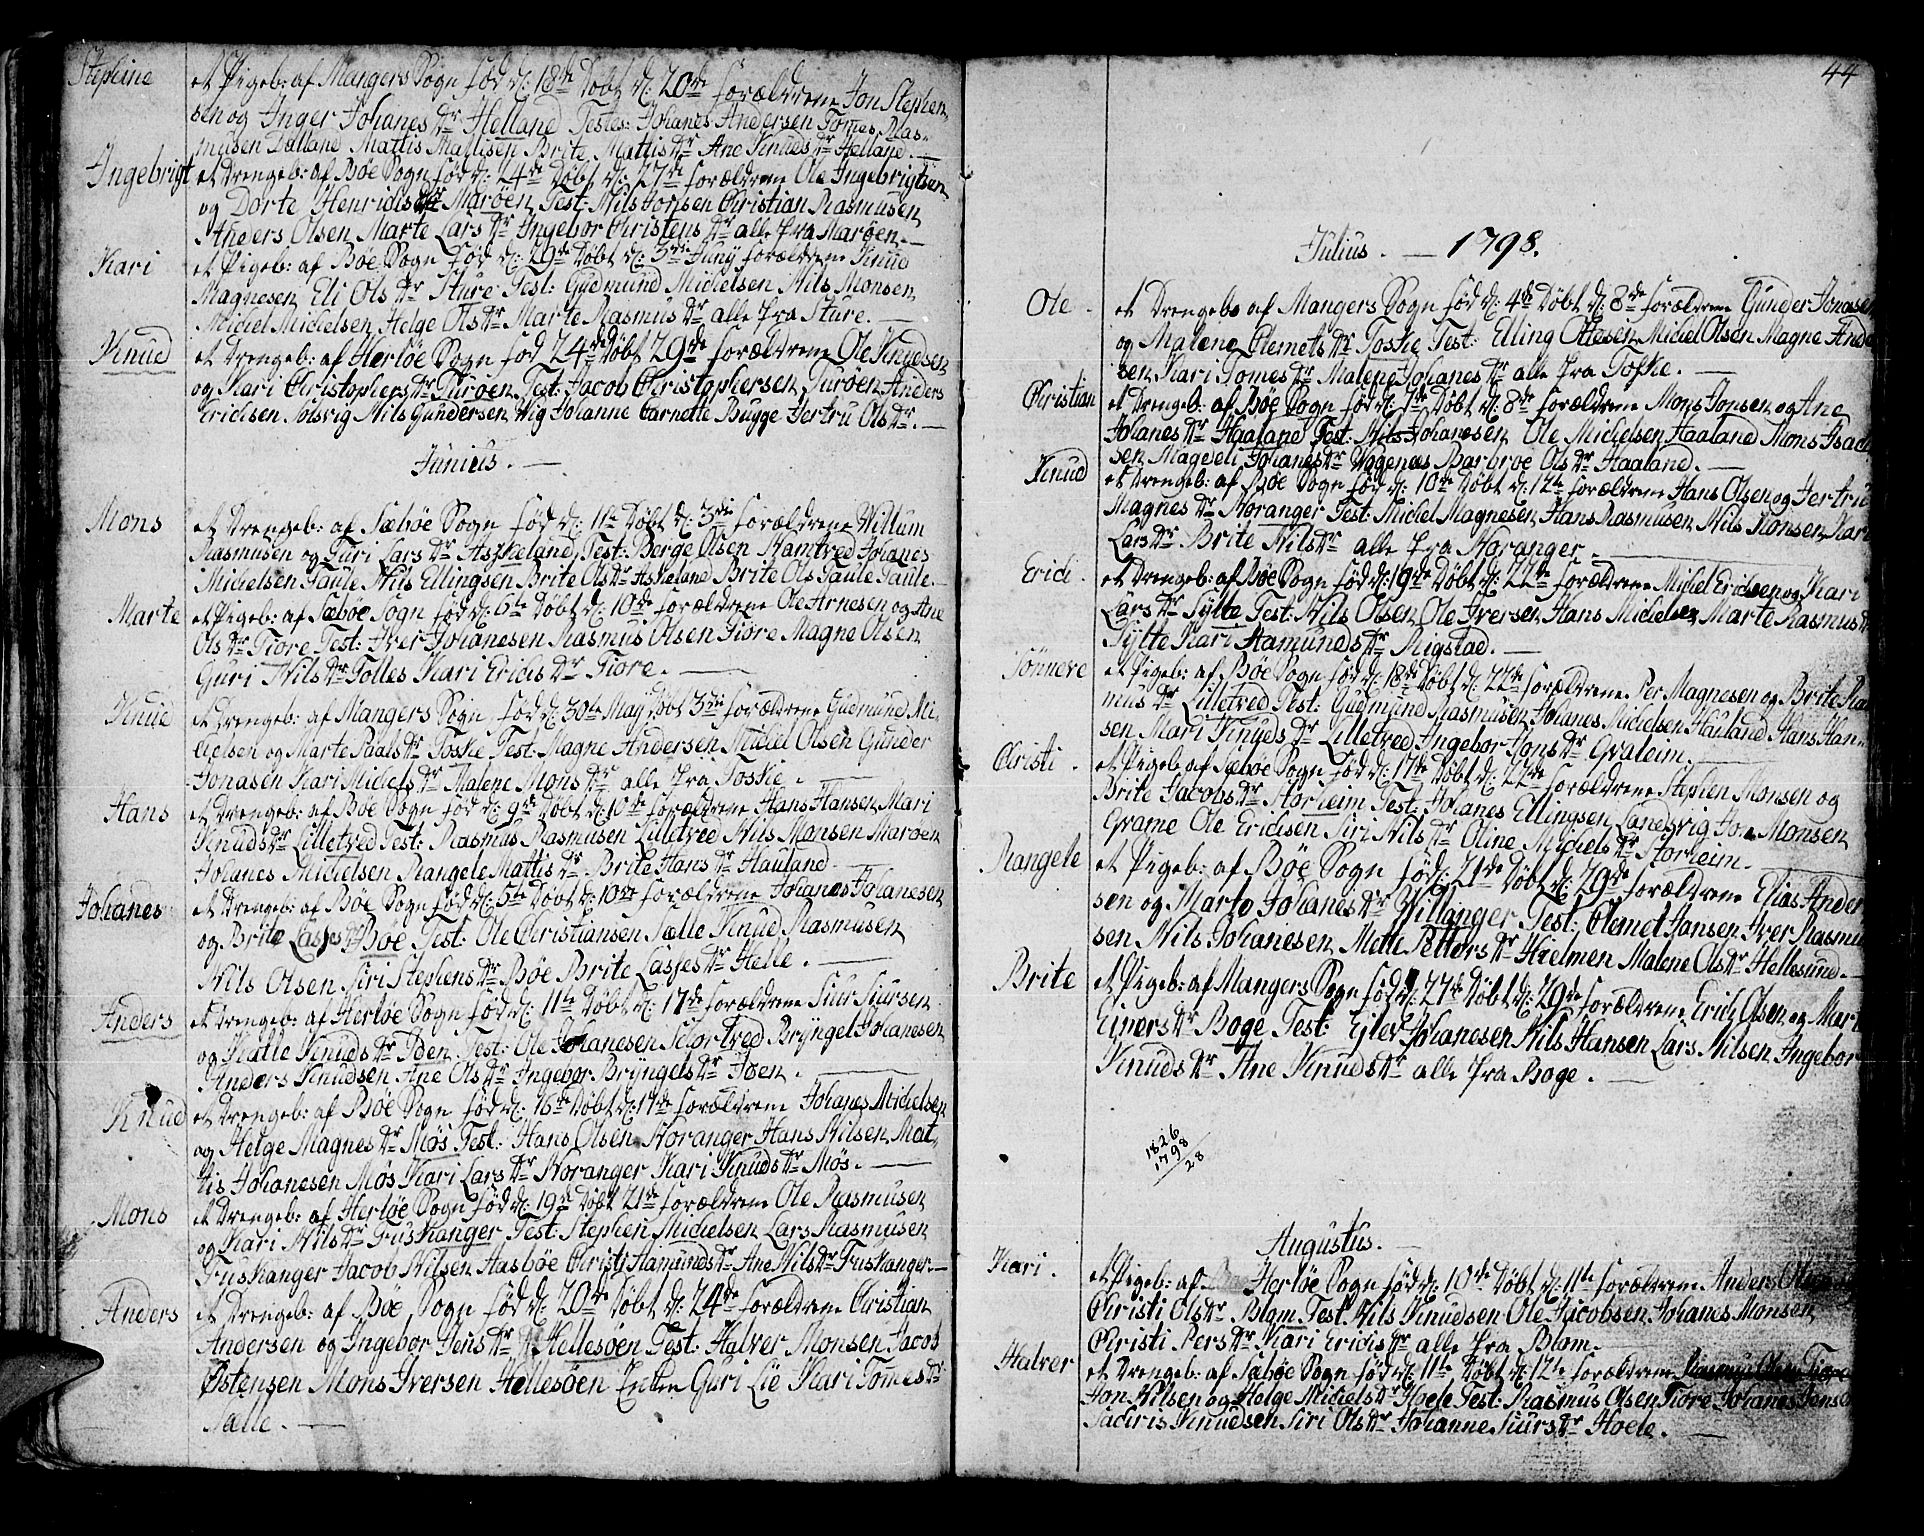 Stephine et Pigeb: af Mangers Sogn fød d: 18de Døbt d: 20de forældrene Jon Stephen
sen og Inger Johanes Dr Helland Testes: Johanes Andersen Tomes Ras-
musen Dalland Mattis Mattisen Brite Mattis Dr Ane Knuds Dr Helland. —
Ingebrigt et Drengeb: af Bøe Sogn fød d: 24de Døbt d: 27de forældrene Ole Ingebrigtsen
og Dorte Henrichs Dr Marøen Test: Nils Jonsen Christian Rasmusen
Anders Olsen Marte Lars Dr Ingebor Christens Dr alle fra Marøen. —
Kari et Pigeb: af Bøe Sogn fød d: 29de Døbt d: 3die Juny forældrene Knud
Magnesen Eli Ols Dr Sture Test: Gudmund Michelsen Nils Monsen
Michel Michelsen Helge Ols Dr Marte Rasmus Dr alle fra Sture. —
Knud et Drengeb: af Herløe Sogn fød 24de Døbt 29de forældrene Ole Knudsen
og Kari Christophers Dr Turøen Test: Jacob Christophersen Turøen Anders
Erichsen Solsvig Nils Gundersen Vig Johanne Carnette Bugge Jertru Ols Dr. —
Junius. —
Mons et Drengeb: af Sæbøe Sogn fød d: 1te Døbt d: 3die forældrene Willum
Rasmusen og Guri Lars Dr Askeland Test: Berge Olsen Kamtred Johanes
Michelsen Taule Nils Ellingsen Brite Ols Dr Askeland Brite Ols Taule Taule. —
Marte et Pigeb: af Sæbøe Sogn fød d: 6te Døbt d: 10de forældrene Ole Arnesen og Ane
Ols Dr Fiøre Test: Iver Johanesen Rasmus Olsen Fiøre Magne Olsen
Guri Nils Dr Tolles Kari Erichs Dr Fiøre. —
Knud et Drengeb: af Mangers Sogn fød d: 30te May Døbt 3die forældrene Gudmund Mi-
chelsen og Marte Paals Dr Toske Test: Magne Andersen Michel Olsen Gunder
Jonasen Kari Michels Dr Malene Mons Dr alle fra Toske. —
Hans et Drengeb: af Bøe Sogn fød d: 9de Døbt d: 10de forældrene Hans Hansen Mari
Knuds Dr Lilletved Test: Rasmus Rasmusen Lilletved Nils Monsen Marøen
Johanes Michelsen Rangele Mattis Dr Brite Hans Dr Hauland —
Johanes et Drengeb: af Bøe Sogn fød d: 5te Døbt d: 10de forældrene Johanes Johanesen
og Brite Lasses Dr Bøe Test: Ole Christiansen Sælle Knud Rasmusen
Nils Olsen Siri Stephens Dr Bøe Brite Lasses Dr Helle. —
Anders et Drengeb: af Herløe Sogn fød d: 11te Døbt d: 17de forældrene Siur Siursen
og Kattie Knuds Dr Ioen Test: Ole Johanesen Brÿngel Johanesen
Anders Knudsen Ane Ols Dr Ingebor Brÿngels Dr Ioen. —
Knud et Drengeb: af Bøe Sogn fød d: 16de Døbt d: 17de forældrene Johanes Michelsen
og Helge Magnes Dr Møs Test: Hans Olsen Noranger Hans Nilsen Mat-
tis Johanesen Møs Kari Lars Dr Noranger Kari Knuds Dr Møs. —
Mons et Drengeb: af Herløe Sogn fød d: 19de Døbt 21de forældrene Ole Rasmusen
og Kari Nils Dr Fruskanger Test: Stephen Michelsen Lars Rasmusen
Fruskanger Jacob Nilsen Aasbøe Christi Aamunds Dr Ane Nils Dr Fruskanger. —
Anders et Drengeb: af Bøe Sogn fød d: 20de Døbt d: 24de forældrene Christian
Andersen og Ingebor Jens Dr Hellesøen Test: Halver Monsen Jacob
Østensen Mons Iversen Hellesøen Enken Guri Lie Kari Tomes Dr
Nalle. —
44
Julius. — 1798.
Ole. et Drengeb: af Mangers Sogn fød d: 4de Døbt d: 8de forældrene Gunder Jonasen
og Malene Clemets Dr Toske Test: Elling Ottesen Michel Olsen Magne Ander
sen Kari Tomes Dr Malene Johanes Dr alle fra Toske. —
Christian et Drengeb: af Bøe Sogn fød d: 7de Døbt d: 8de forældrene Mons Jonsen og Ane
Johanes Dr Haaland Test: Nils Johanesen Ole Michelsen Haaland Mons Isach
sen Magdeli Johanes Dr Vogenæs Barbroe Ols Dr Haaland. —
Knud et Drengeb: af Bøe Sogn fød d: 10de Døbt d: 12te forældrene Hans Olsen og Jertrue
Magnes Dr Noranger Test: Michel Magnesen Hans Rasmusen Nils Monsen Kari
Lars Dr Brite Nils Dr alle fra Noranger. —
Erich. et Drengeb: af Bøe Sogn fød d: 19de Døbt d: 22de forældrene Michel Erichsen og Kari
Lars Dr Sylte Test: Nils Olsen Ole Iversen Hans Michelsen Marte Rasmus Dr
Sylte Kari Aamunds Dr Migstad. —
Sönneve et Pigeb: af Bøe Sogn fød d: 18de Døbt d: 22de forældrene Per Magnesen og Brite Ras
mus Dr Lilletved Test: Gudmund Rasmusen Johanes Michelsen Hauland Hans Han-
sen Mari Knuds Dr Lilletved Ingebor Hans Dr Qvaleim. —
Christi. et Pigeb: af Sæbøe Sogn fød d: 17de Døbt d: 22de forældrene Stephen Monsen og
Brite Jacobs Dr Storheim Test: Johanes Ellingsen Landsvig Jon Monsen
Qvame Ole Erichsen Siri Nils Dr Oline Michels Dr Storheim. —
Rangele et Pigeb: af Bøe Sogn fød d: 21de Døbt d: 29de forældrene Elias Ander
sen og Marte Johanes Dr Villanger Test: Clemet Hansen Iver Rasmu
sen Nils Johanesen Mette Petters Dr Hielmen Malene Ols Dr Hellesund. —
Brite et Pigeb: af Mangers Sogn fød d: 27de Døbt d: 29de forældrene Erich Olsen og Mari
Einers Dr Boge Test: Ejlev Johanesen Nils Hansen Lars Nilsen Ingebor
Knuds Dr Ane Knuds Dr alle fra Boge. —
1826
1798
28
Augustus. —
Kari. et Pigeb: af Herløe Sogn fød d: 10de Døbt d: 11te forældrene Anders Olsen
Christi Ols Dr Blom Test: Nils Knudsen Ole Jacobsen Johanes Monsen
Christi Pers Dr Kari Erichs Dr alle fra Blom.
Halver et Drengeb: af Sæbøe Sogn fød d: 11te Døbt d: 12te forældrene
Jon Nilsen og Helge Michels Dr Hoele Test: Rasmus Olsen Fiøre Johanes Jensen
Sachris Knudsen Siri Ols Dr Johanne Siurs Dr Hoele. —